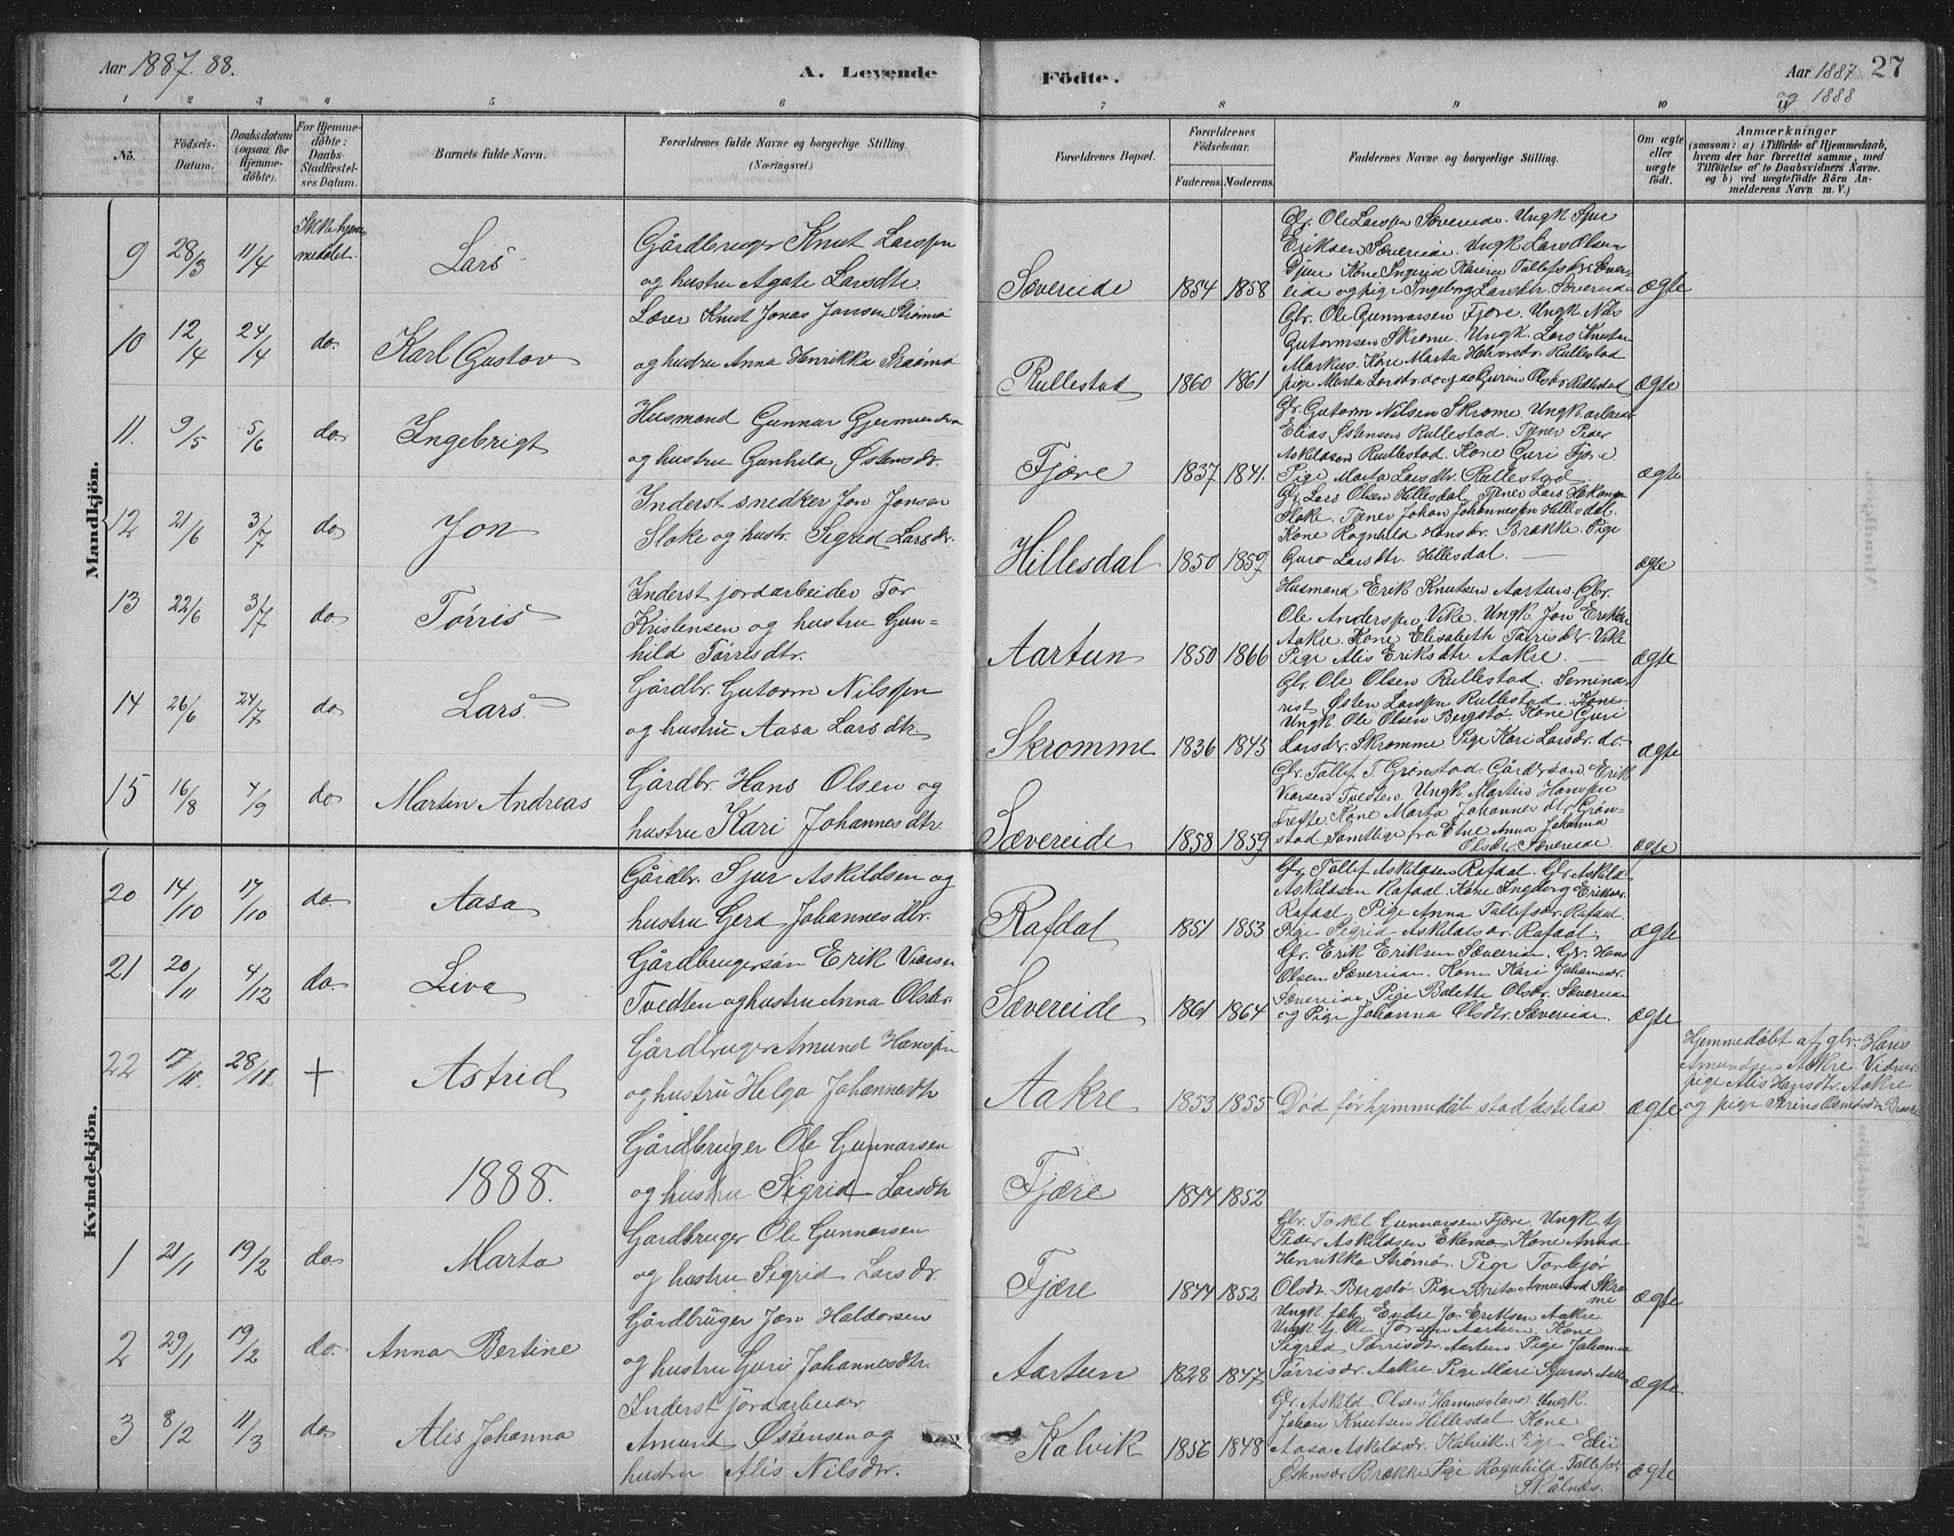 Aar 1887. 88.
A. Levende Födte.
Aar 1887 27
og 1888
1 2 3 4 5 6 7 8 9 10 11
No.
Födsels-
Datum.
Daabsdatum
(ogsaa for
Hjemme-
döbte).
For Hjemme-
döbte:
Daabs-
Stadfæstel-
ses Datum.
Barnets fulde Navn.
Forældrenes fulde Navne og borgerlige Stilling.
(Næringsvei.)
Forældrenes Bopæl.
Forældrenes
Födselsaar.
Faderens. Moderens.
Faddernes Navne og borgerlige Stilling.
Om ægte
eller
uægte
født.
Anmærkninger
(saasom: a) i Tilfælde af Hjemmedaab,
hvem der har forrettet samme, med
Tilföielse af to Daabsvidners Navne,
og b) ved uægtefödte Börn An-
melderens Navn m. V.)
Mandkjön.
9 28/3 11/4
Ikke hjem-
medøbt.
Lars
Gårdbruger Knut Larssen
og hustru Agate Larsdtr.
Sævereide 1854 1858
Gbr. Ole Larssen Sævereide. Ungk Sjur
Eriksen Sævereide. Ungk Lars Olsen
eide og pige Ingeborg Larsdtr Sævereide
ægte
10 12/4 24/4 do. Karl Gustav
Lærer Knut Jonas Jansen Strømø
og hustru Anna Henrikka Strømø
Rullestad 1860 1861
Gbr. Ole Gunnarsen Fjære. Ungk Nils
Gutormsen Skrome. Ungk. Lars Knutsen
Markus. Kone Marta Rullestad
pige Marta Larsdtr. do og do Gurine Olsdtr Rullestad
ægte
11. 9/5 5/6 do Ingebrigt
Husmand Gunnar
og hustru Gunhild Østensdr.
Fjære 1837 1841.
Gbr. Gutorm Nilsen Skrome. Ungk. arbeider
Elias Østensen Rullestad. Tjener Peder
Askildsen Rullestad. Kone Guri Fjære
Pige Marta Larsdtr. Rullestad
ægte
12 21/6 3/7 do Jon
Inderst snedker Jon Jonsen
Sloke og hustr. Sigrid Larsdr.
Hillesdal 1850 1859
Gbr Lars Olsen Hillesdal Tjener Lars
Sloke. Tjener Johan Johannessen Hillesdal.
Kone Ragnhild Hansdr. Brække. Pige
Guro Larsdtr. Hillesdal.
ægte
13 22/6 3/7 do Tørris
Inderst jordarbeider Tor
Kristensen og hustru Gun=
hild Tørrisdtr.
Aartun 1850 1866
Husmand Erik Knutsen Aartun. Gbr.
Ole Anderssen Vike. Ungk. Jon Eriksen
Aakre. Kone Elisabeth Tørrisdr. Vike
Pige Alis Eriksdtr. Aakre.
ægte
14 26/6 24/7 do Lars
Gårdbr. Gutorm Nilssen
og hustru Aasa Larsdtr.
Skromme 1836 1845
Gbr. Ole Olsen Rullestad. Semina-
rist Østen Larssen Rullestad. Kone
Ungk. Ole Olsen Bergstø. Kone Guri
Larsdr. Skromme Pige Kari Larsdr. do.
ægte
15 16/8 4/9 do Martin Andreas
Gårdbr. Hans Olsen og
hustru Kari Johannesdtr.
Sævereide 1858 1859
Gbr. Tollef T. Grønstad. Gårdbrsøn Erik
Viarsen Tvedten. Ungk Martin Hanssen
Trefte. Kone Marta Johannesdtr. Grøn-
stad Samtlige fra Etne. Anna Johanna
Olsdtr. Sævereide.
ægte
Kvindekjön.
20 14/10 17/10 do. Aasa
Gårdbr. Sjur Askildsen og
hustru Gera Johannesdtr.
Rafdal 1851 1853
Gbr. Tollef Askildsen Rafdal. Gbr Askild
Askildsen Rafdal. Kone Ingeborg Eriksdr.
Rafdal. Pige Anna Tollefsdr. Rafdal.
Pige Sigrid Askildsdr. Rafdal.
ægte
21 20/11 4/12 do. Liva
Gårdbrugersøn Erik Viarsen
Tvedten og hustru Anna Olsdtr.
Sævereide 1861 1864
Gbr. Erik Eriksen Sævereide. Gbr. Hans
Olsen Sævereide. Kone Kari Johannesdr.
Sævereide, Pige Bolette Olsdr. Sævereide
og Pige Johanna Olsdtr. Sævereide.
ægte
22 17/11. 28/11. + Astrid
Gårdbruger Amund Hanssen
og hustru Helga Johannesdtr
Aakre 1853 1855
Død før hjemmedåb stadfæstelse
ægte
Hjemmedøbt af gbr. Hans
Amundsen Aakre. Vidner
pige Alis Hansdtr. Aakre
og pige
1888.
Gårdbruger Ole Gunnarsen
og hustru Sigrid Larsdtr
Fjære 1844 1852
1 21/1 19/2 do Marta
Gardbruger Ole Gunnarsen
og hustru Sigrid Larsdr.
Fjære 1844 1852
Gbr. Torkel Gunnarsen Fjære. Ungk. G.
Peder Askildsen Ekemo Kone Anna
Henrikka Strømø. Pige Torbjør
Olsdr. Bergstø. Pige Brita Skro-
me
ægte
2 29/1 19/2 do. Anna Bertine
Gårdbruger Jon Haldorsen
og hustru Guri Johannesdtr.
Aartun 1828 1847
Ungk. Endre Jo. Eriksen Aakre
Ungk G. Ole Torsen Aartun. Kone
Sigrid Tørrisdr. Aartun. Pige Johanna
Tørrisdr. Aakre Pige Mari
ægte
3 8/2 11/3 do Alis Johanna
Inderst jordarbeider
Amund Østensen og
hustru Alis Nilsdr.
Kalvik 1856 1848
Gbr. Askild Olsen Hamnesland. Ungk.
Johan Knutsen Hillesdal. Kone
Aasa Askildsdr. Kalvik. Pige Eli
Østensdr Brække Pige Ragnhild Tollefsdr
Skålnes.
ægte